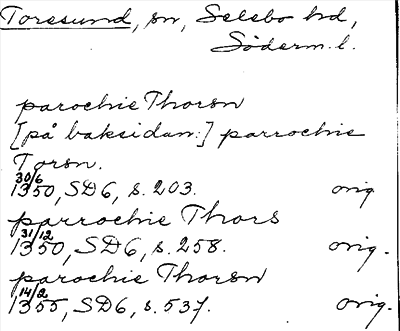 Toresund, sn, Selebo hd,
Söderm. l.
parochie Thorsn
[på baksidan:] parrochie
Torsn.
30/6 1350, SD6, s. 203. orig.
parrochie Thors
31/12 1350, SD6, s. 258. orig.
parochie Thorsn
14/2 1355, SD6, s. 537. orig.